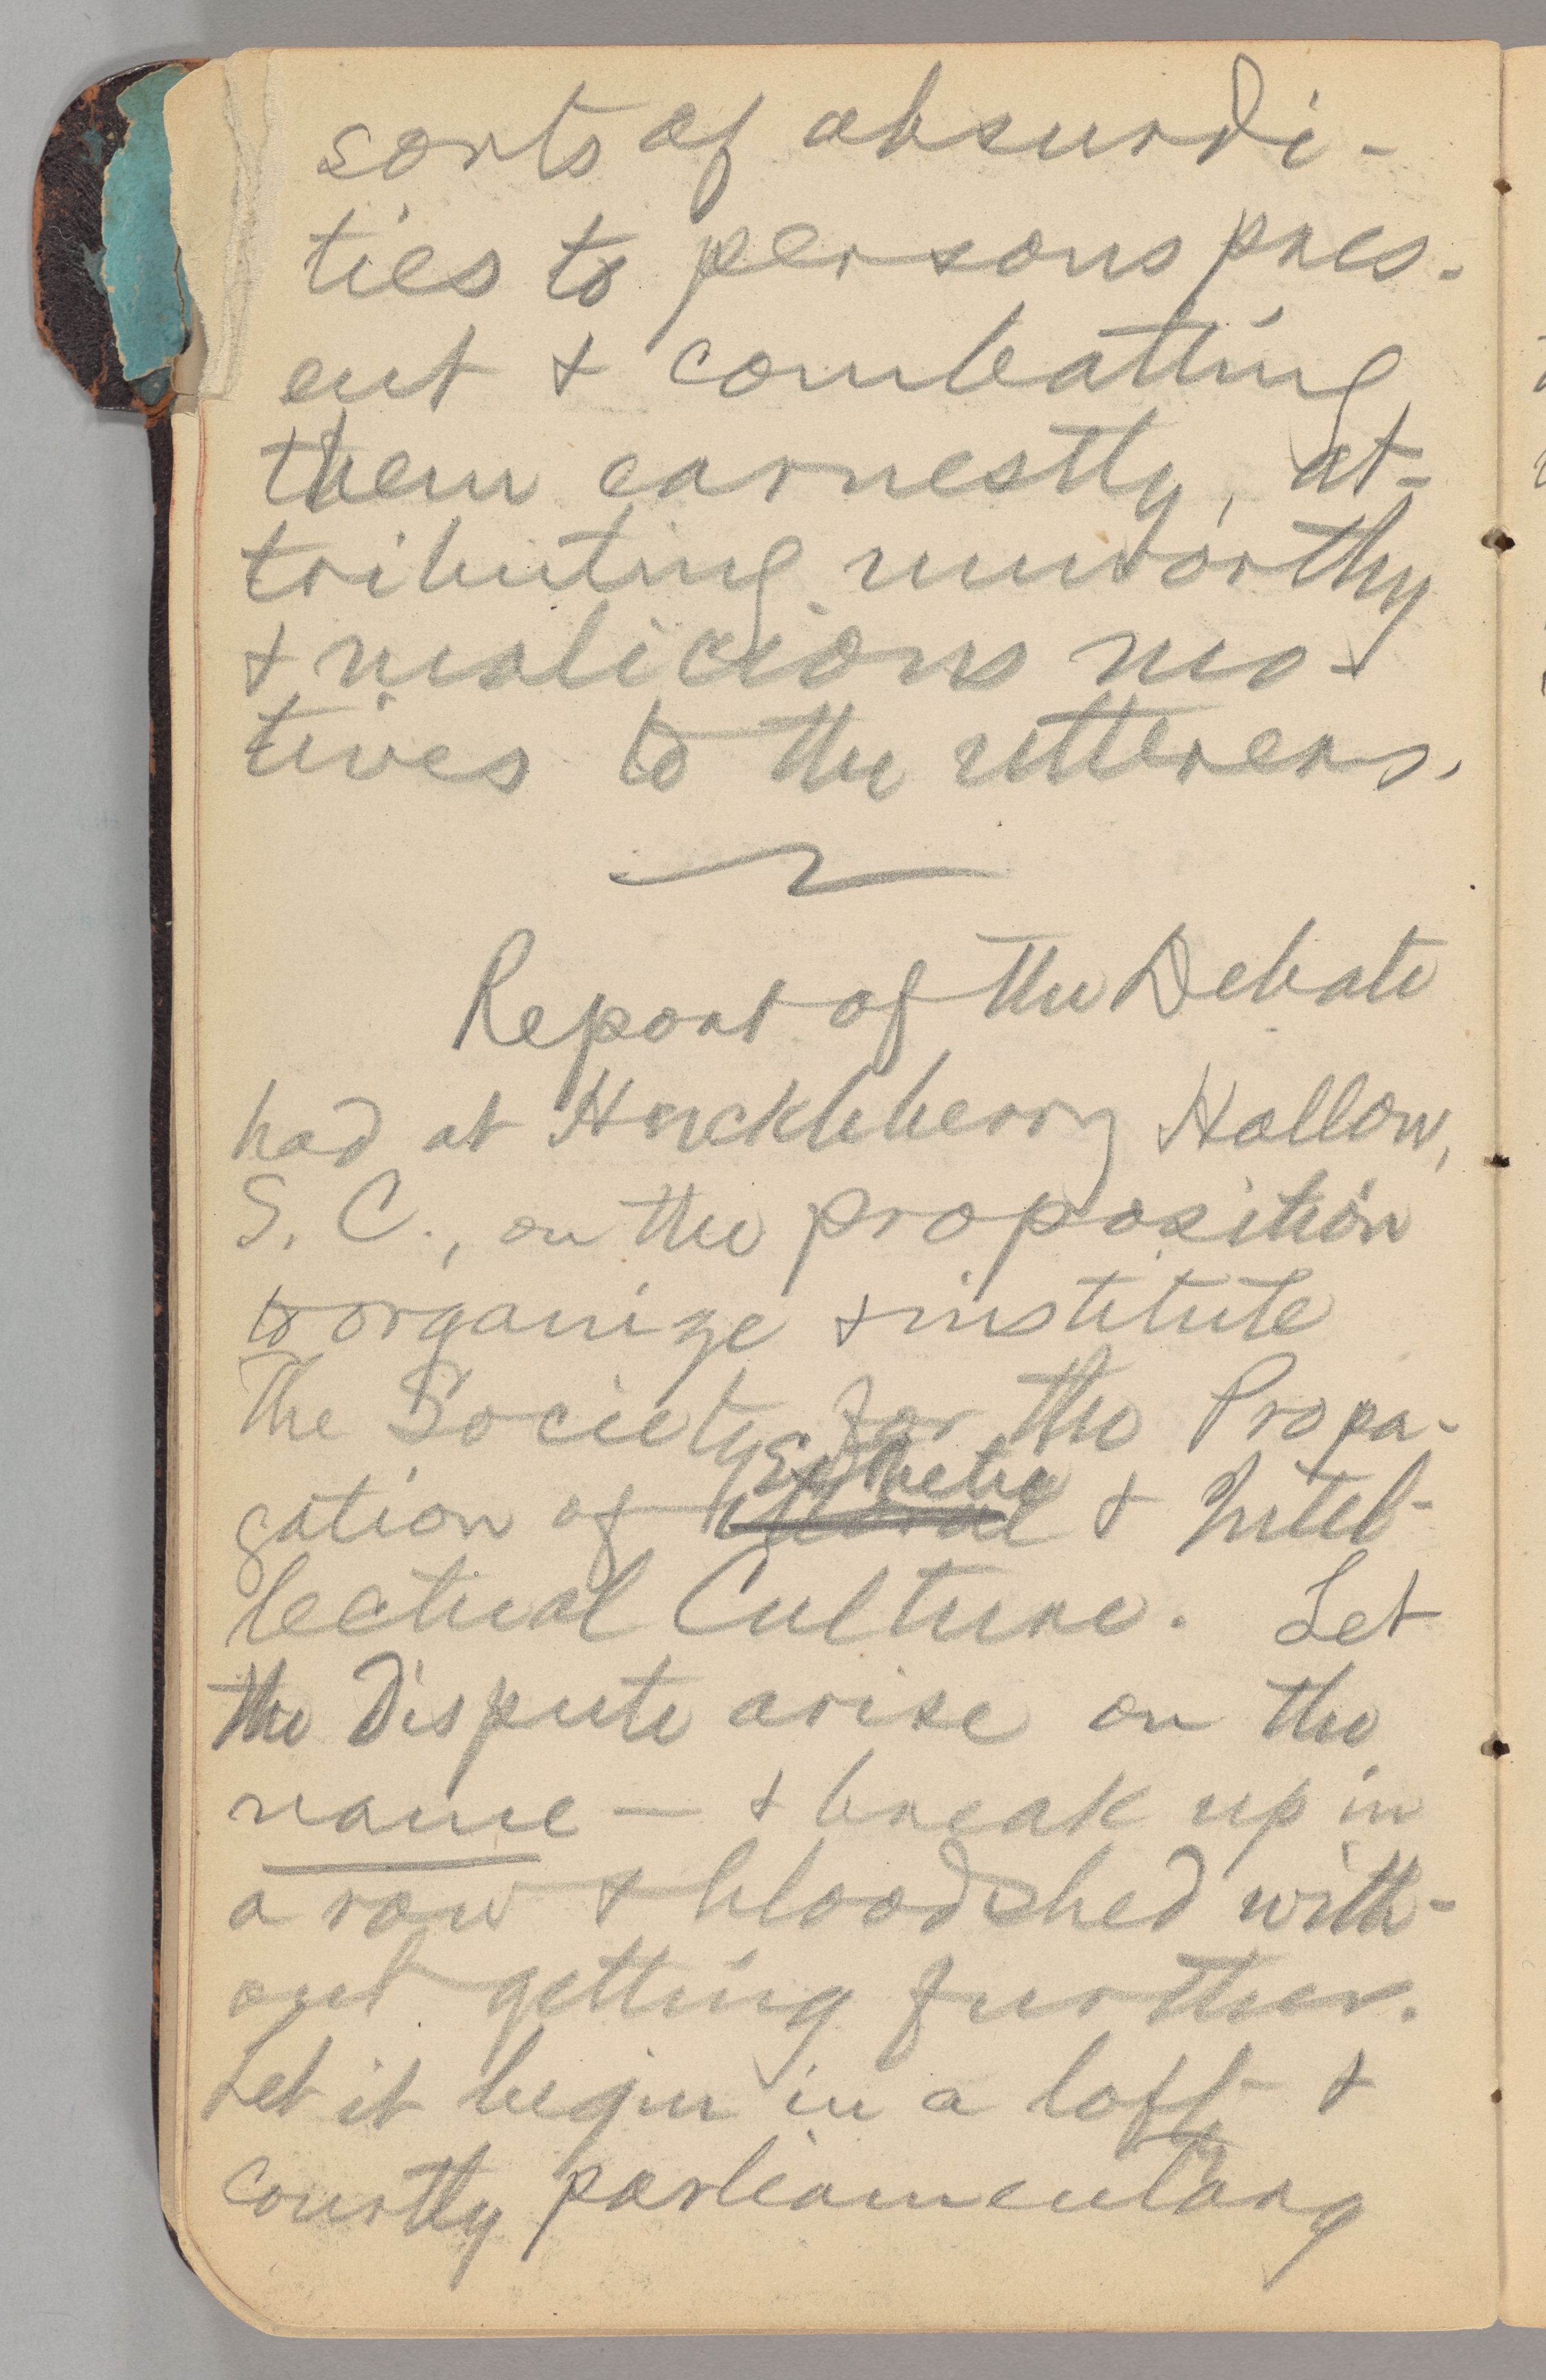 sorts of absurdi-
ties to persons pres-
ent & combatting
them earnestly, at-
tributing unworthy
& malicious mo-
tives to the utterers.
Report of the Debate
had at Huckleberry Hollow,
S. C., on the proposition
to organize & institute
The Society for the Propa-
gation of Esthetic
& Intel-
lectual Culture. Let
the dispute arise on the
name — & break up in
a row & bloodshed with-
out getting further.
Let it begin in a lofty &
courtly parliamentary